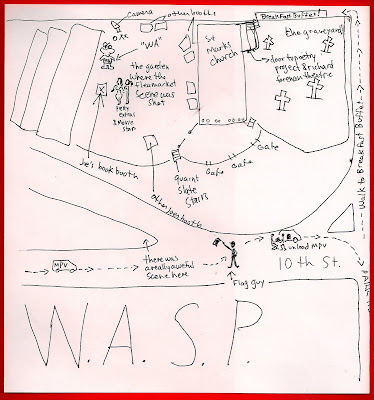 Camera
other booths
BreakFast Buffet!
"WA"
St
Marks
church
the graveyard
the garden
where the
fleamarket
scene was
shot
door to poetry
project & richard
foreman theatre
Feky
extras
& movie
stars
Joe's book booth
other loser booth
quaint
slate
stairs
Gate
Gate
Gate
Walk to Breakfast Buffet
MPV
there was
a really aweful
scene here
unload MPV
10th St.
Flag guy
W.A.S.P.